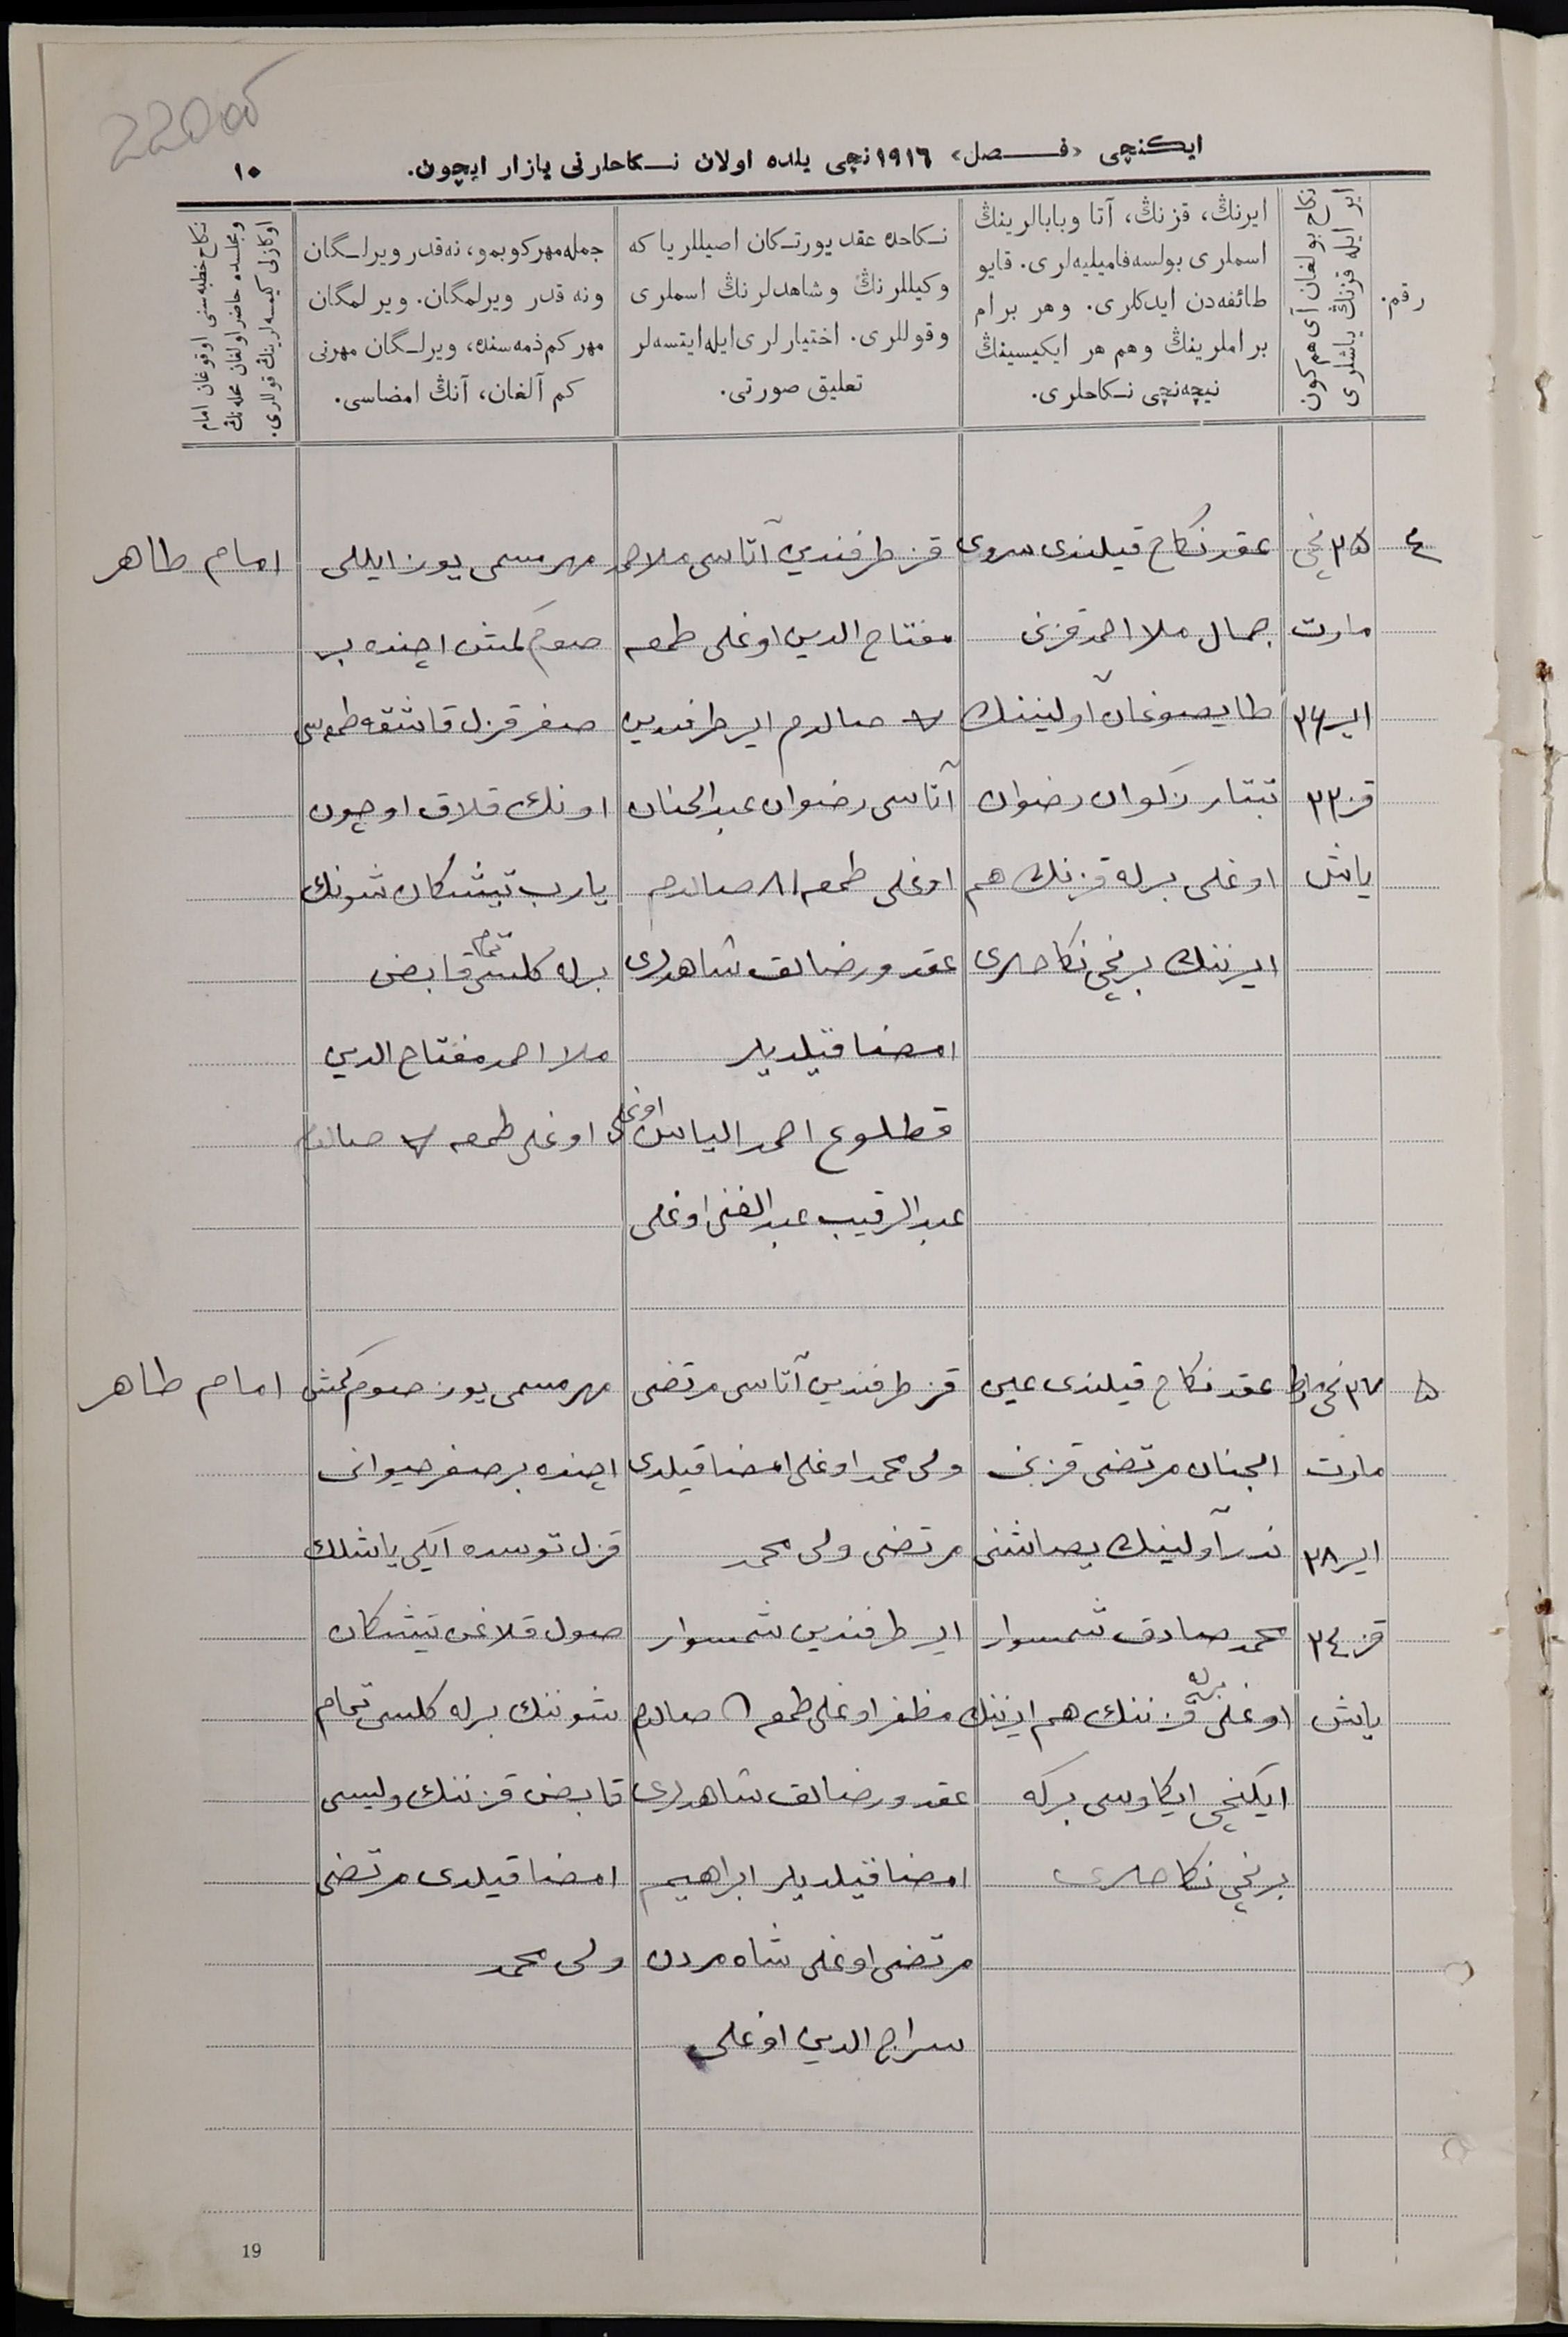 22000
ایکنچی «فصل» ۱۹۱٦نچی یلده اولان نکاحلرنی یازار ایچون.
۱۰
رقم.
نکاح بولغان آی هم کون
ایر ایله قزنڭ یاشلری
ایرنڭ، قزنڭ، آتا وبابالرینڭ
اسملری بولسه فامیلیه‌لری. قایو
طائفه‌دن ایدکلری. وهر برام
براملرینڭ وهم هر ایکیسینڭ
نیچه‌نچی نکاحلری.
نکاحده عقد یورتکان اصیللر یا که
وکیللرنڭ وشاهدلرنڭ اسملری
وقوللری. اختیارلری ایله ایتسه‌لر
تعلیق صورتی.
جمله مهر کوبمو، نه‌قدر ویرلگان
ونه قدر ویرلمگان. ویرلمگان
مهر کم ذمه‌سنده، ویرلگان مهرنی
کم آلغان، آنڭ امضاسی.
نکاح خطبه‌سنی اوقوغان امام
ومجلسده حاضر اولغان محله‌نڭ
اوکازنی کیمسه‌لرینڭ قوللری.
٤
۲۵ نچی
مارت
ایر ۲۶
قز ۲۲
یاش
عقد نکاح قیلندی سروی
جمال ملا احمد قزینی
طایصوغان آولیننك
تبتار زکوان رضوان
اوغلی برله قزنك هم
ایرننك برنچی نکاحلری
قز طرفندین آتاسی ملا احمد
مفتاح الدین اوغلی طمغه
صالدم ایر طرفندین
آتاسی رضوان عبدالحنان
اوغلی طمغه ۸۱ صالدم
عقد ورضالق شاهدلری
امضا قیلدیلر
قطلوع احمد الیاس اوغلی
عبدالرقیب عبدالغنی اوغلی
مهر مسمی یوز ایللی
صوم کمش اچنده بر
صفر قزل قاشقه طمغه‌سی
اونك قلاق اوچون
یارب تیشکان شونك
برله کلسی تمام قابض
ملا احمد مفتاح الدین
اوغلی طمغه صالدم
امام طاهر
۵
۲۷ نچی
مارت
ایر ۲۸
قز ۲٤
یاش
عقد نکاح قیلندی عین
الجنان مرتضی قزینی
ندر آولینك یصاشنی
محمد صادق شمسوار
اوغلی برله قزننك هم ایرننك
ایکنچی ایکاوسی برکه
برنچی نکاحلری
قز طرفندین آتاسی مرتضی
ولی محمد اوغلی امضا قیلدی
مرتضی ولی محمد
ایر طرفندین شمسوار
مظفر اوغلی طمغه صالدم
عقد ورضالق شاهدلری
امضا قیلدیلر ابراهیم
مرتضی اوغلی شاه مردن
سراج الدین اوغلی
مهر مسمی یوز صوم کمش
اچنده بر صفر حیوانی
قزل توسده ایکی یاشلك
صول قلاغی تیشکان
شوننك برله کلسی تمام
قابض قزننك ولیسی
امضا قیلدی مرتضی
ولی محمد
امام طاهر
19